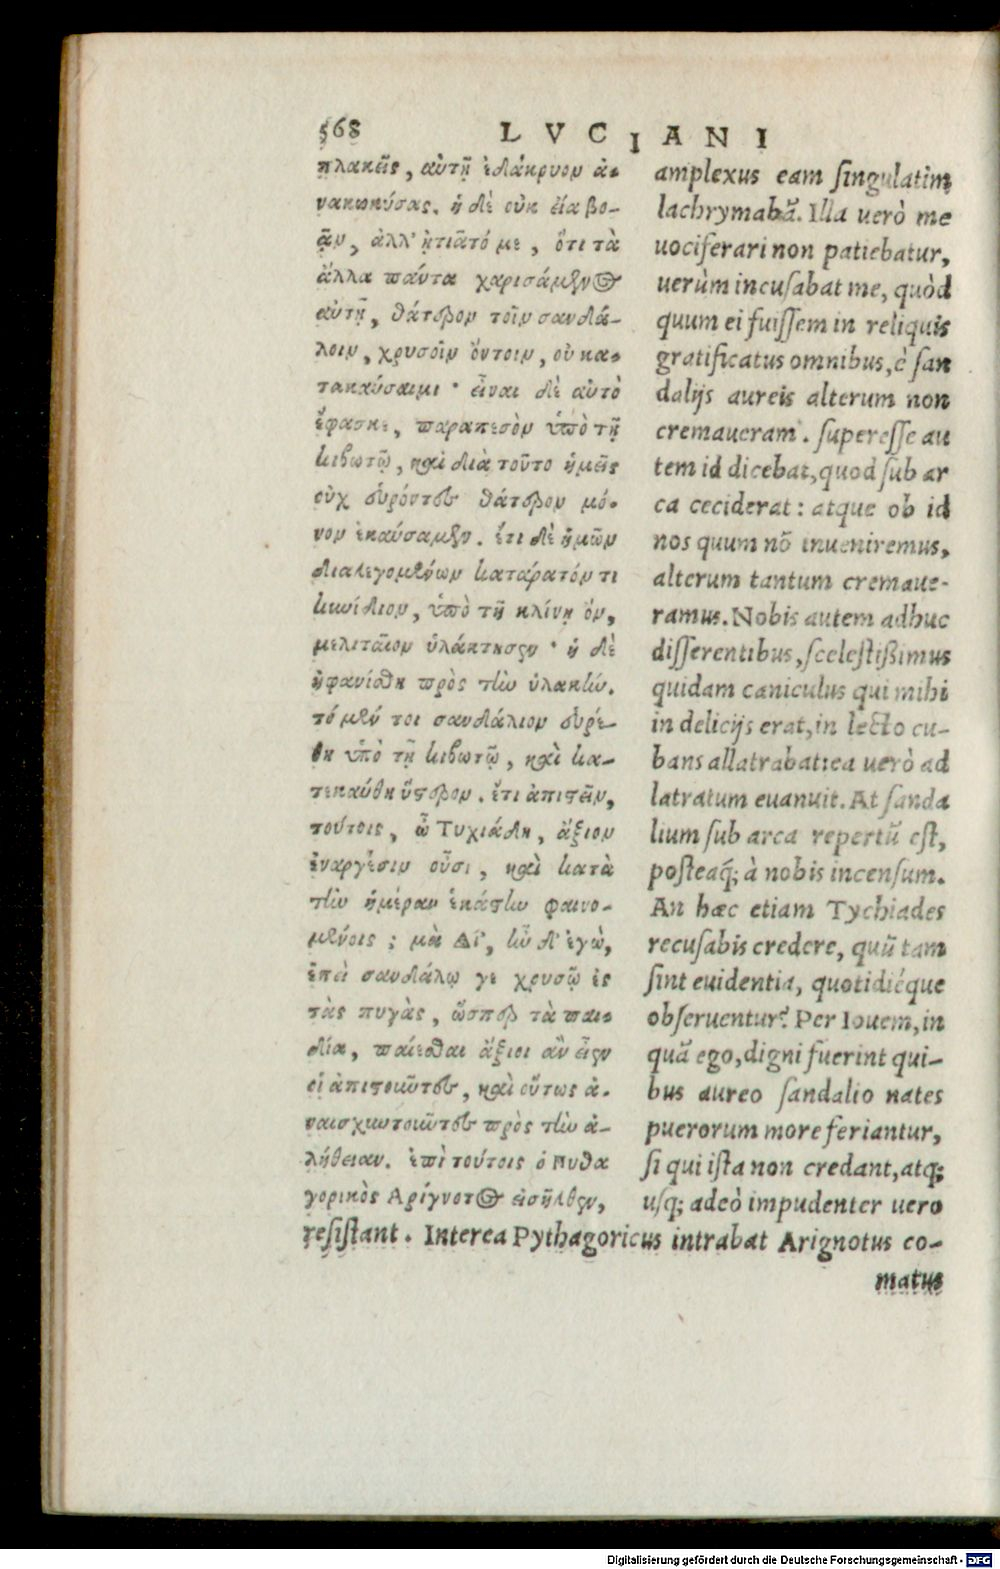 568 LVCIANI
πλακεὶς, αὐτῇ ἐδάκρυον ἀ-
νακωκύσας. ἡ δὲ οὐκ εἴα βο-
ᾷν, ἀλλ' ᾐτιᾶτό με, ὅτι τὰ
ἄλλα πάντα χαρισάμενος
αὐτῇ, θάτερον τοῖν σανδά-
λοιν, χρυσοῖν ὄντοιν, οὐ κα-
τακαύσαιμι· εἶναι δὲ αὐτὸ
ἔφασκε, παραπεσὸν ὑπὸ τῇ
κιβωτῷ, καὶ διὰ τοῦτο ἡμεῖς
οὐχ εὑρόντες θάτερον μό-
νον ἐκαύσαμεν. ἔτι δὲ ἡμῶν
διαλεγομένων κατάρατόν τι
κυνίδιον, ὑπὸ τῇ κλίνῃ ὂν,
μελιταῖον ὑλάκτησεν· ἡ δὲ
ἠφανίσθη πρὸς τὴν ὑλακήν.
τὸ μέν τοι σανδάλιον εὑρέ-
θη ὑπὸ τῇ κιβωτῷ, καὶ κα-
τεκαύθη ὕστερον. ἔτι ἀπιστεῖν,
τούτοις, ὦ Τυχιάδη, ἄξιον
ἐναργέσιν οὖσι, καὶ κατὰ
τὴν ἡμέραν ἑκάστην φαινο-
μένοις; μὰ Δί', ἦν δ' ἐγὼ,
ἐπεὶ σανδάλῳ γε χρυσῷ ἐς
τὰς πυγὰς, ὥσπερ τὰ παι-
δία, παίεσθαι ἄξιοι ἂν εἶεν
οἱ ἀπιστοῦντες, καὶ οὕτως ἀ-
ναισχυντοῦντες πρὸς τὴν ἀ-
λήθειαν. ἐπὶ τούτοις ὁ πυθα
γορικὸς Ἀρίγνοτος εἰσῆλθεν,
amplexus eam singulatim
lachrymabã. Illa uerò me
uociferari non patiebatur,
uerùm incusabat me, quòd
quum ei fuissem in reliquis
gratificatus omnibus, è san
dalijs aureis alterum non
cremaueram. superesse au
tem id dicebat, quod sub ar
ca ceciderat: atque ob id
nos quum nõ inueniremus,
alterum tantum cremaue-
ramus. Nobis autem adhuc
disserentibus, scelestißimus
quidam caniculus qui mihi
in delicijs erat, in lecto cu-
bans allatrabat: ea uerò ad
latratum euanuit. At sanda
lium sub arca repertũ est,
posteaq́; à nobis incensum.
An hæc etiam Tychiades
recusabis credere, quũ tam
sint euidentia, quotidiéque
obseruentur? Per Iouem, in
quã ego, digni fuerint qui-
bus aureo sandalio nates
puerorum more feriantur,
si qui ista non credant, atq;
usq; adeò impudenter uero
resistant. Interea Pythagoricus intrabat Arignotus co-
matus
Digitalisierung gefördert durch die Deutsche Forschungsgemeinschaft - DFG